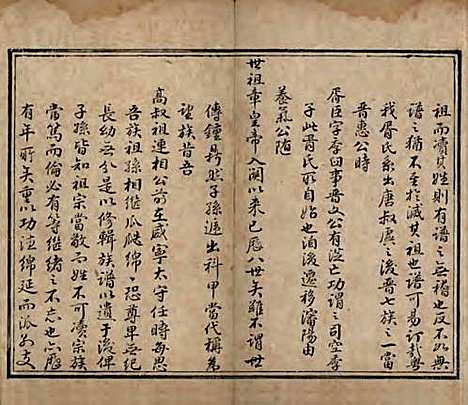 祖而瀆其姓則有譜之無稽也反不如無
譜之猶不至於滅其祖也譜可易訂哉粵
我胥氏系出唐叔虞之後晉七族之一當
晉惠公時
胥臣字季曰事晉文公有從亡功謂之司空季
子此胥氏所自始也洎後遷移瀋陽由
養氣公隨
世祖章皇帝入関以来已歷八世矣雖不謂世
傳鐘鼎然子孫遞出科甲當代稱為
望族昔吾
高叔祖運相公前在咸寧太守任時每見
吾族祖孫相繼瓜瓞綿綿恐尊卑無紀
長幼無分是以修輯族譜以遺于後俾
子孫皆知祖宗當敬而姓不可瀆宗族
當篤而倫必有等继緒之不忘也心應
有年所矣重以功注綿延而派分支